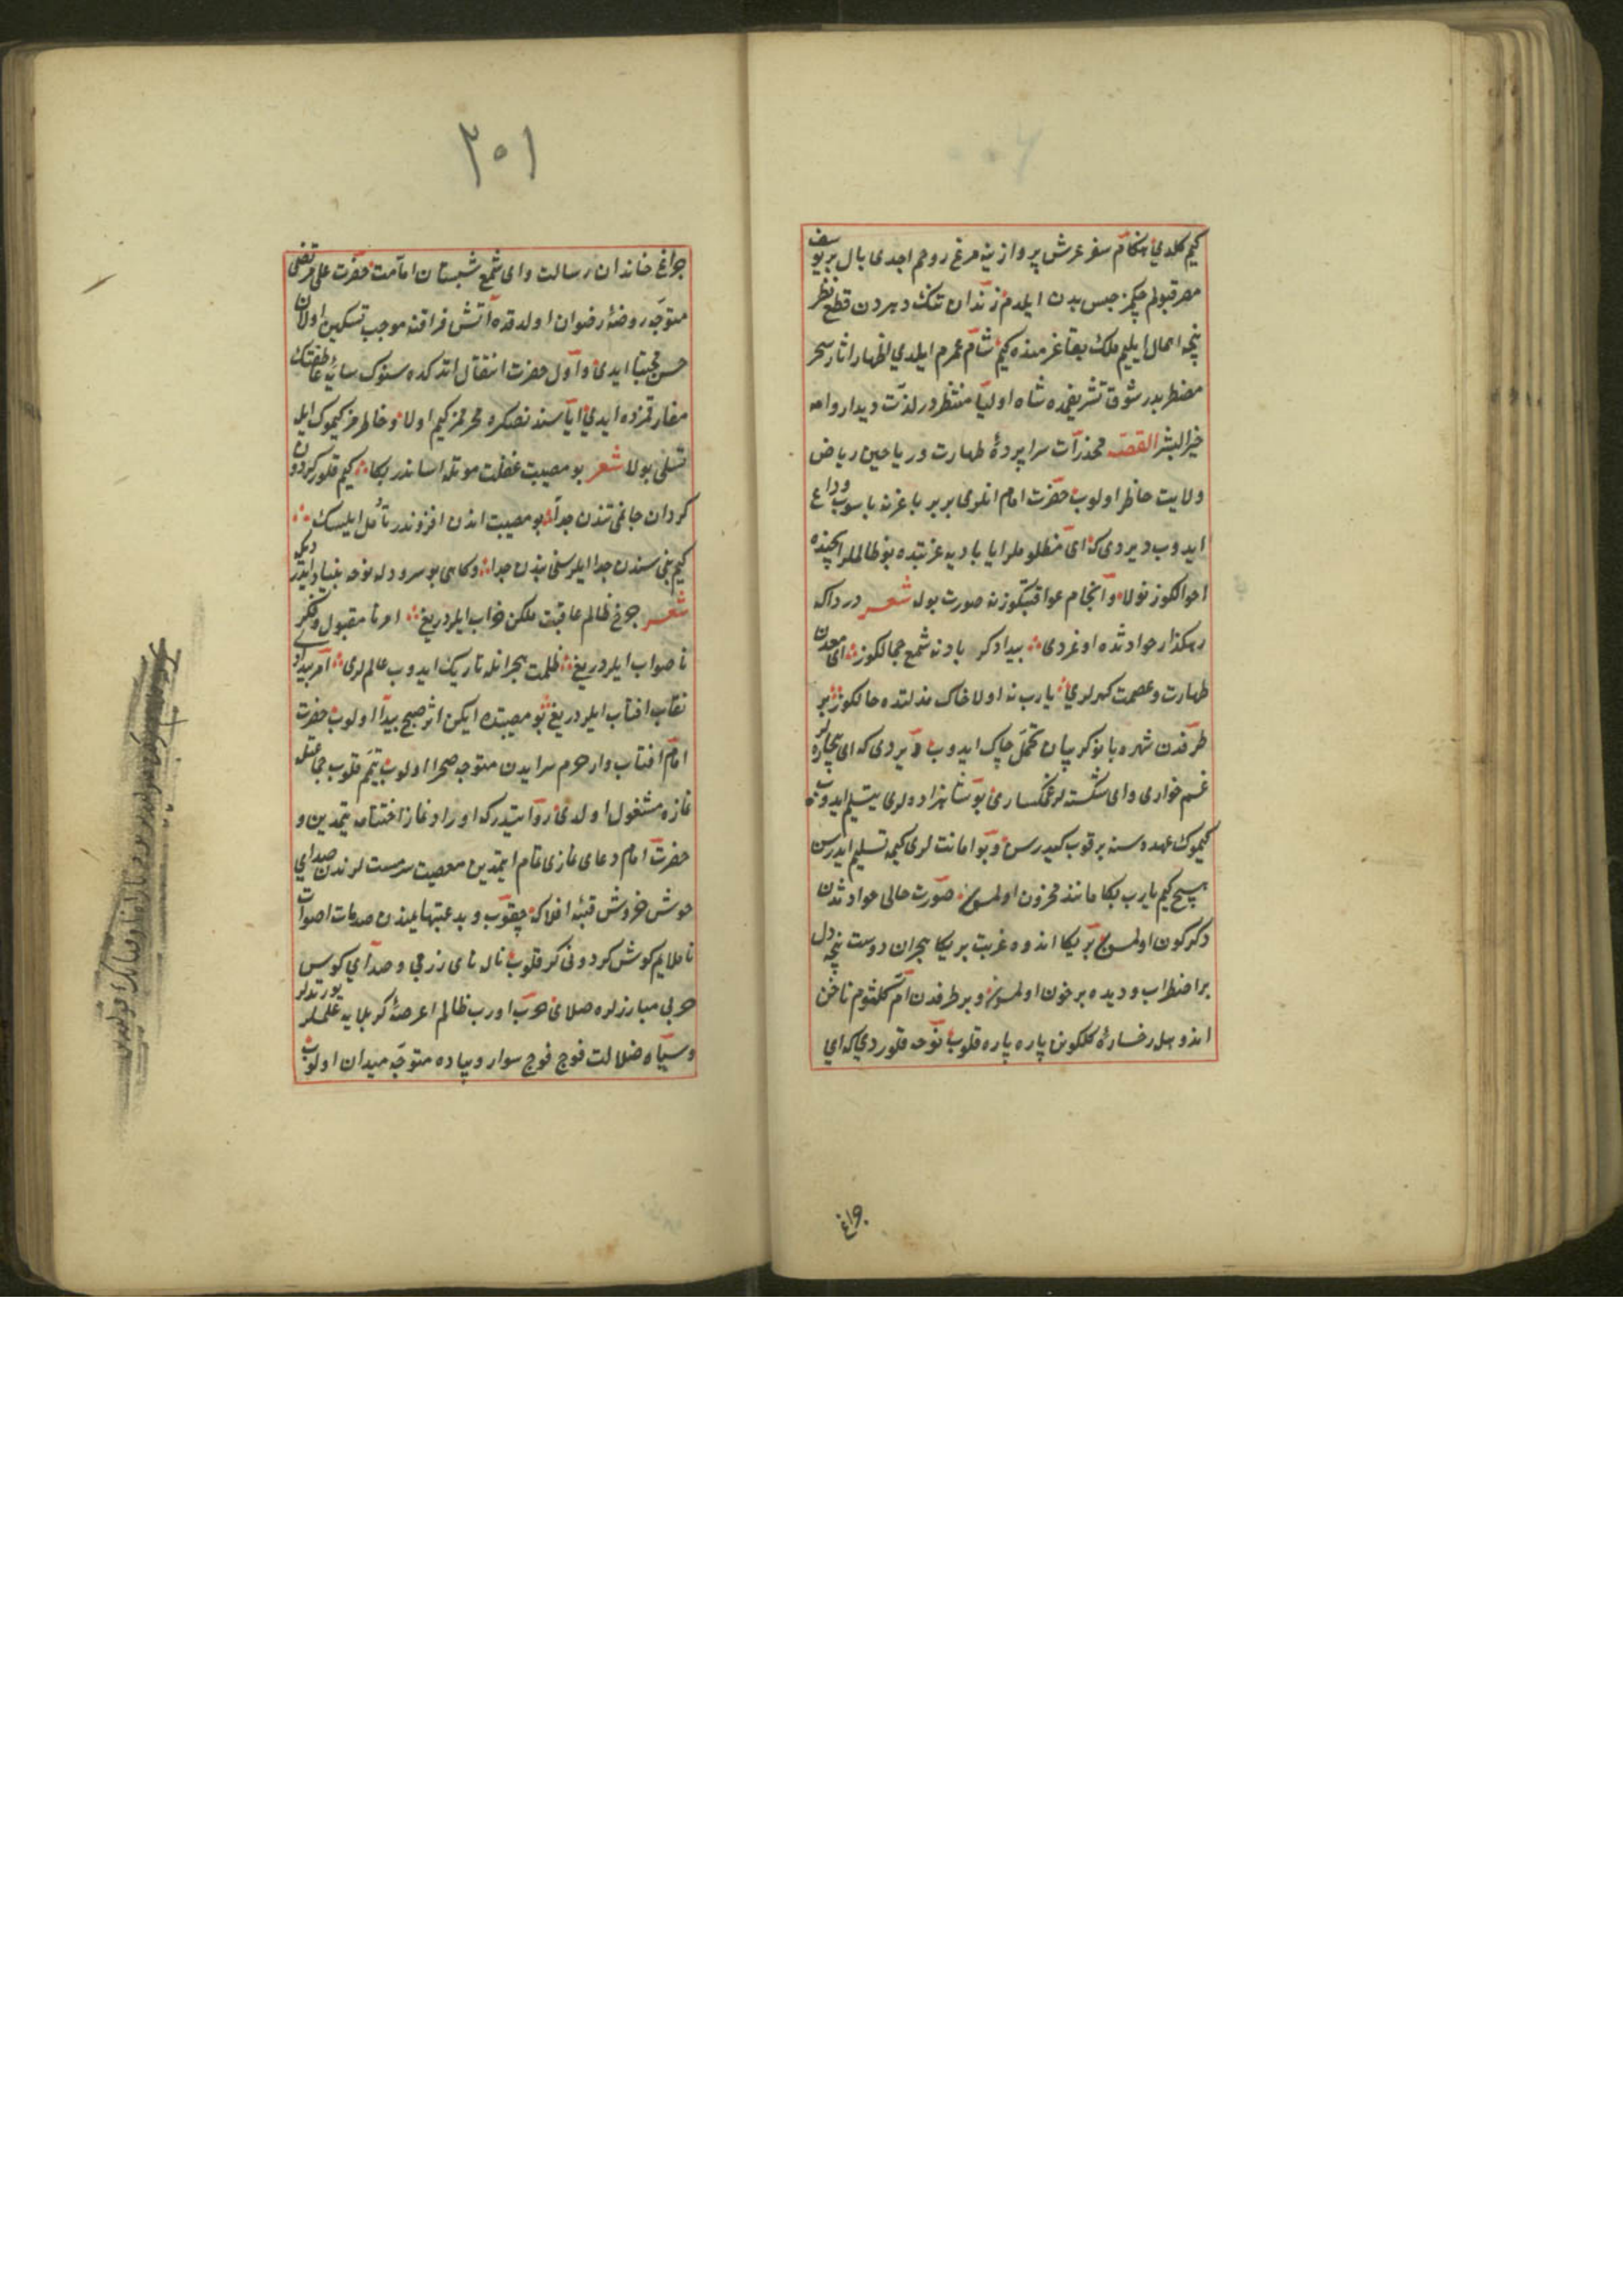 كیم كلدی هنكام سفر عرش پروازینه مرغ روحم اجدی بال بر یوسف
مصر قبولم چكمز حبس بدن ایلدم زندان تنك دهردن قطع نظر
نیجه اهمال ایلیم ملك بقا عزمنده كیم شام عمرم ایلدی اظهار اثار سحر
مضطربدر شوق تشریفمده شاه اولیا منتظردر لذت دیدارمه
خیر البشر القصه مخدرات سراپردهٔ طهارت و ریاحین ریاض
ولایت حاظر اولوب حضرت امام انلری بربر باغرنه باسوب وداع
ایدوب دیردی كه ای مظلوملر ایا بادیه غربتده بو ظالملر ایچنده
احوالكوز نولا و انجام عواقبتكوز نه صورت بولا شعر درداكه
رهكذار حوادثده اوغردی بیدادكر بادنه شمع جمالكوز ای معدن
طهارت و عصمت كهرلری یارب نه اولا خاك مذلتده حالكوز بر
طرفدن شهربانو كریبان تحمل چاك ایدوب دیردی كه ای بیچاره لر
غمخواری و ای شكسته لر غمكساری بو شاهزاده لری یتیم ایدوب
كیموك عهده سنه برقوب كیدرسن و بو امانت لری كیمه تسلیم ایدرسن
هیچ كیم یارب بكا مانند محزون اولمسون صورت حالی حوادثدن
دكركون اولمسون بر یكا اندوه غربت بر یكا هجران دوست نیجه دل
پر اضطراب و دیده پر خون اولمسون و بر طرفدن ام كلثوم ناخن
اندوهله رخسارهٔ كلكونن پاره پاره قلوب نوحه قلوردی كه ای
چراغ
۳۰۱
چراغ خاندان رسالت و ای شمع شبستان امامت حضرت علی مرتضی
متوجه روضهٔ رضوان اولدقده آتش فراقنه موجب تسكین اولان
حسن مجتبا ایدی و اول حضرت انتقال اتدكده سنوك سایهٔ عاطفتك
مفارقتزده ایدی ایا سندنصكره محرممز كیم اولا و خاطرمز كیموك ایله
تسلی بولا شعر بو مصیبت غفلت موتله اساندر بكا كیم قلور كردون
كردان جانمی تندن جدا بو مصیبت اندن افزوندر تأمل ایلسك
كیم بنی سندن جدا ایلر سنی بندن جدا و كاهی بو سرود له نوحه بنیاد ایدر دیكه
شعر چرخ ظالم عاقبت ملكن خراب ایلر دریغ امر نامقبول و فكر
ناصواب ایلر دریغ ظلمت هجرانله تاریك ایدوب عالم لری
نقاب افتاب ایلر دریغ بو مصیبتده ایكن اثر صبح پیدا اولوب حضرت
امام افتاب وار حرم سرایدن متوجه صحرا اولوب تیمم قلوب جماعتله
نمازه مشغول اولدی روایتدركه اوراد نماز اختتامه یتمدین و
حضرت امام دعای نمازی تمام ایتمدین معصیت سرمست لرندن صدای
جوش خروش قبهٔ افلاكه چقوب و بدعبتهایلندن صدمات اصوات
ناملایم كوش كردونی كر قلوب ناله نای رزمی و صدای كوس
حربی مبارزلره صلای حرب اورب ظالملر عرصهٔ كربلایه علملر یورتدلر
و سپاه ضلالت فوج فوج سوار و پیاده متوجه میدان اولوب